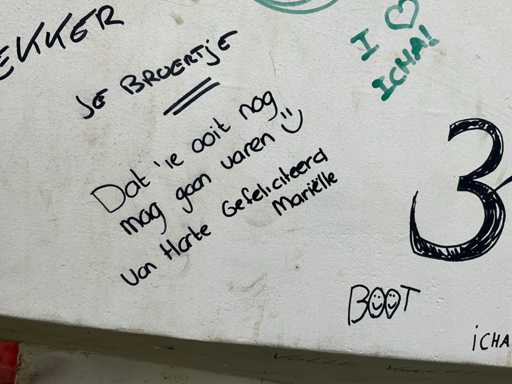 EKKER
JE BROERTJE
I ♡
ICHA!
Dat 'ie ooit nog
mag gaan varen
Van Harte Gefeliciteerd
Mariëlle
3
BOOT
iCHA